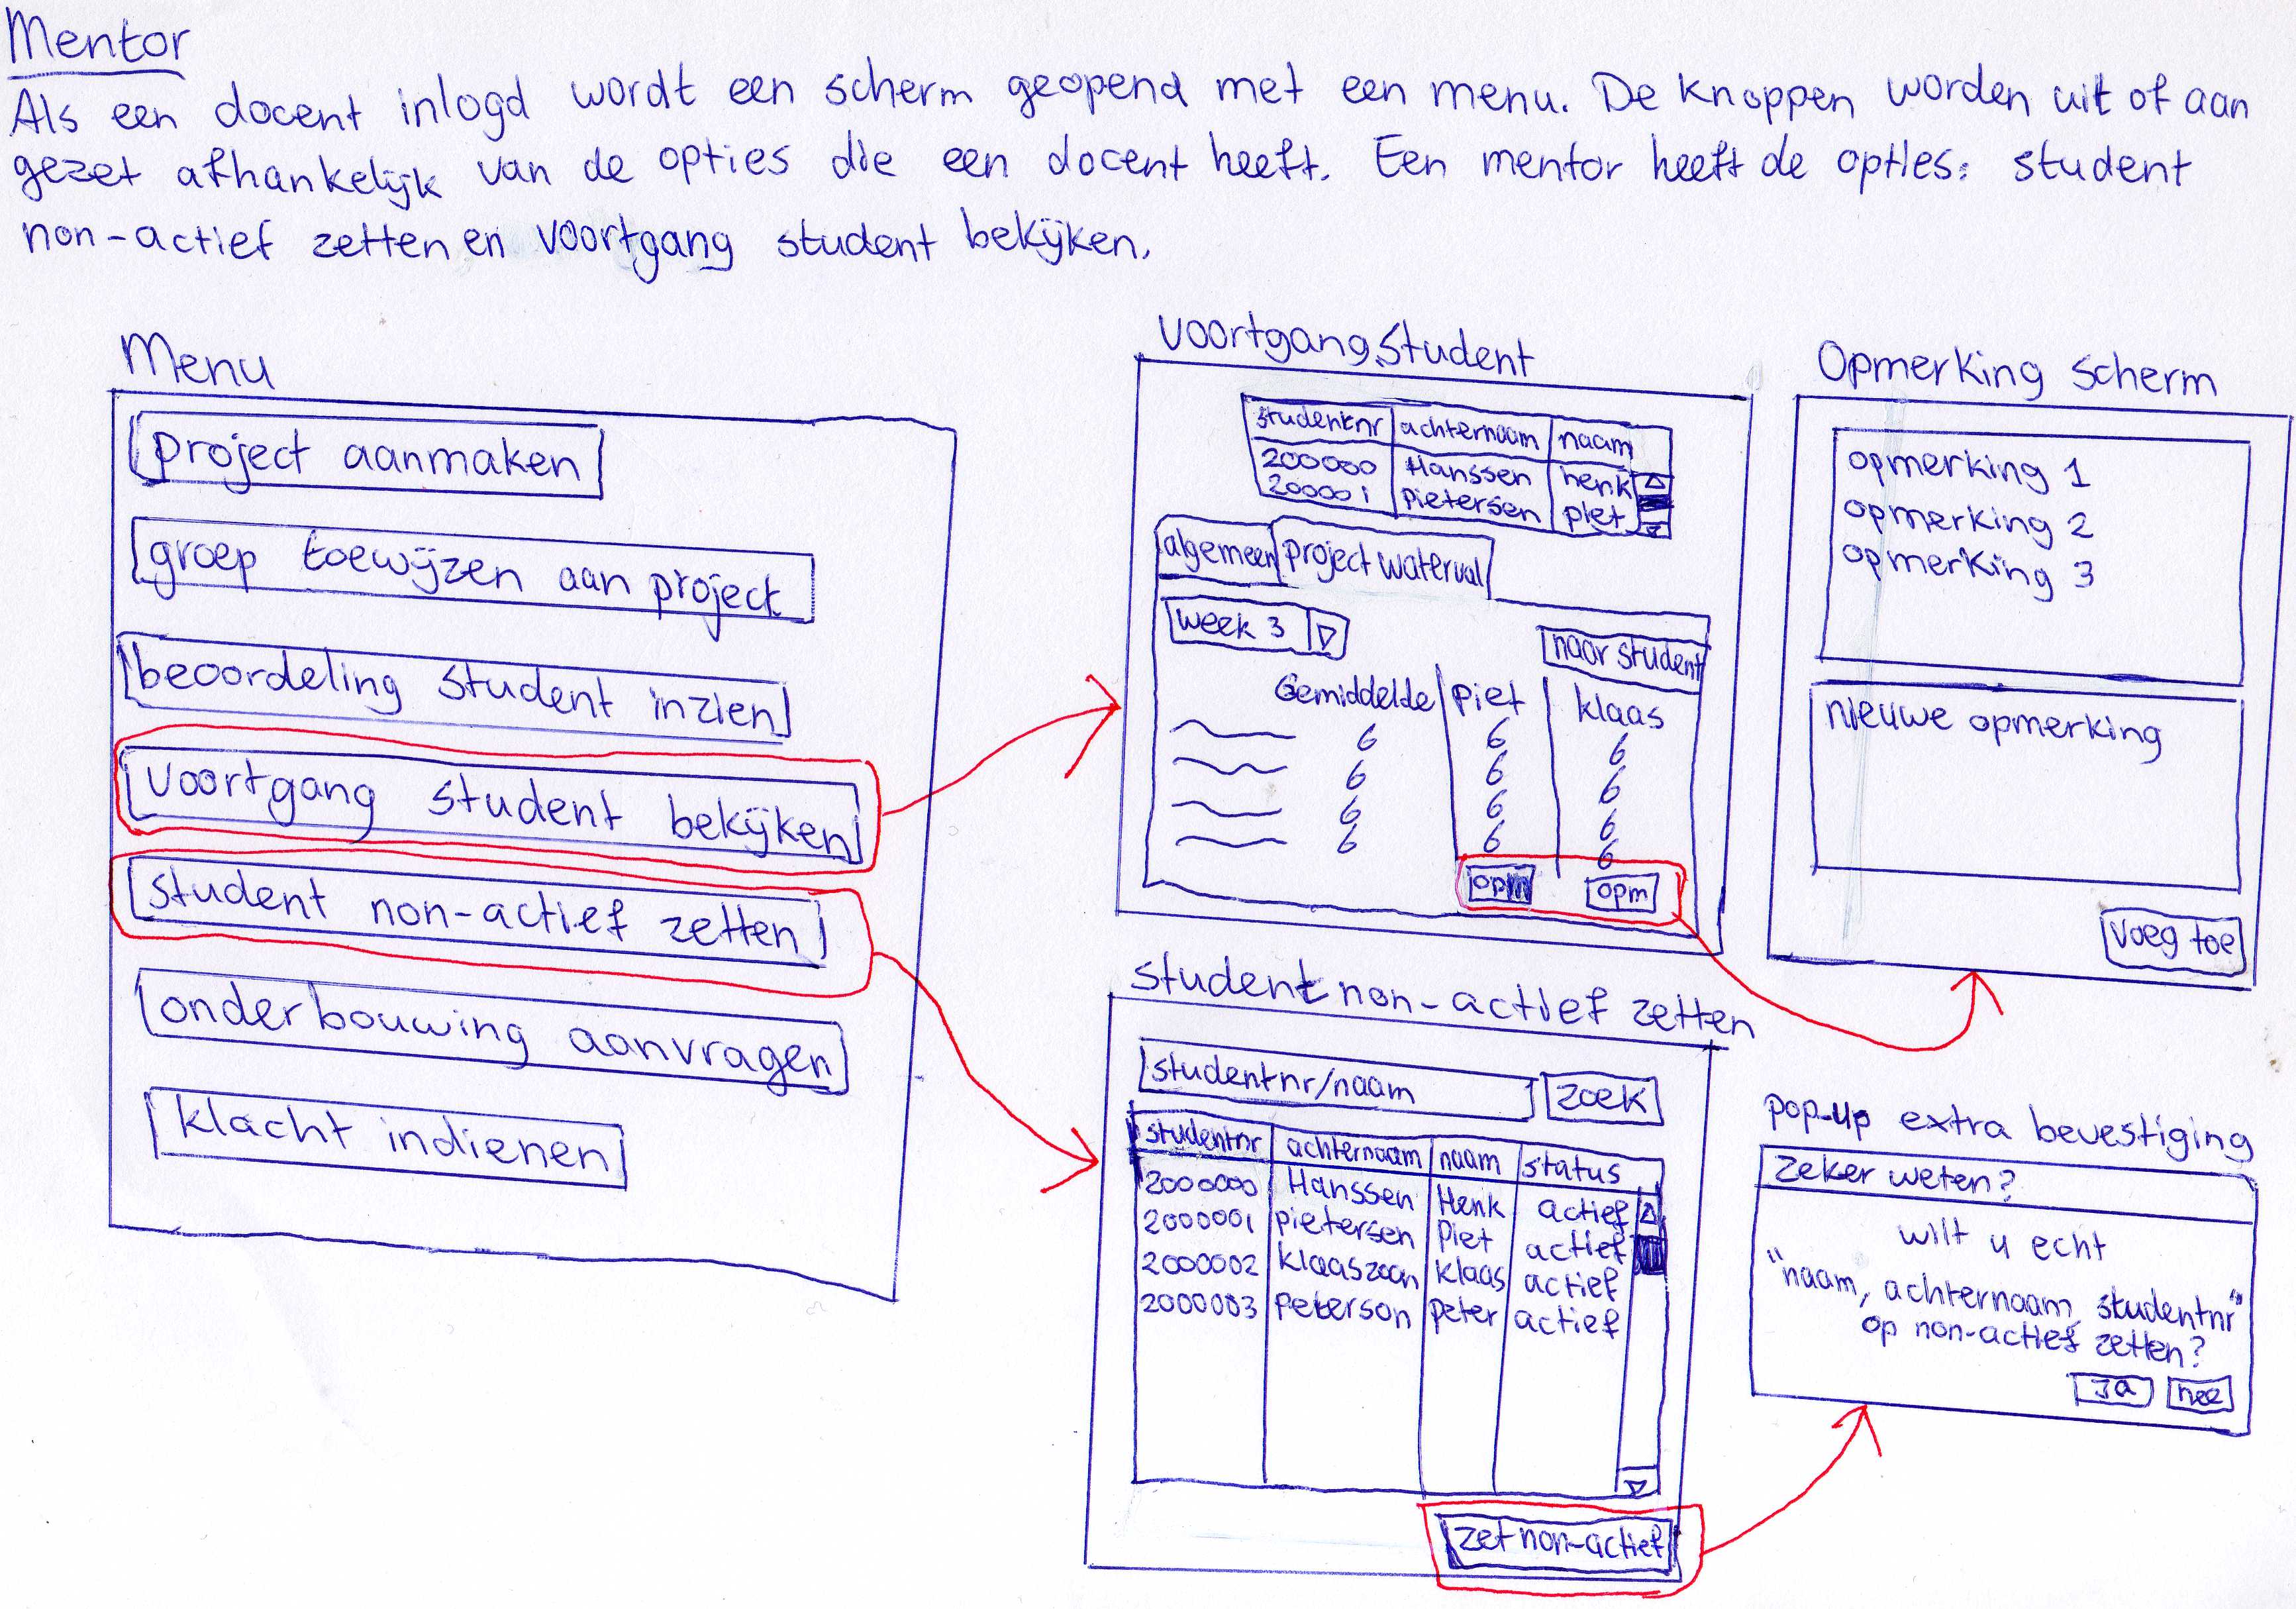 Mentor
Als een docent inlogd wordt een scherm geopend met een menu. De knoppen worden uit of aan
gezet afhankelijk van de opties die een docent heeft. Een mentor heeft de opties: student
non-actief zetten en voortgang student bekijken.
Menu
project aanmaken
groep toewijzen aan project
beoordeling student inzien
voortgang student bekijken
student non-actief zetten
onderbouwing aanvragen
klacht indienen
voortgang student
studentnr achternaam naam
200000 Hanssen henk
200001 pietersen piet
algemeen project waterval
week 3
naar student
Gemiddelde piet klaas
6 6 6
6 6 6
6 6 6
6 6 6
opm opm
Opmerking scherm
opmerking 1
opmerking 2
opmerking 3
nieuwe opmerking
voeg toe
student non-actief zetten
studentnr/naam zoek
studentnr achternaam naam status
2000000 Hanssen Henk actief
2000001 pietersen Piet actief
2000002 klaaszoon klaas actief
2000003 peterson peter actief
zet non-actief
pop-up extra bevestiging
zeker weten?
wilt u echt
"naam, achternaam, studentnr"
op non-actief zetten?
Ja nee